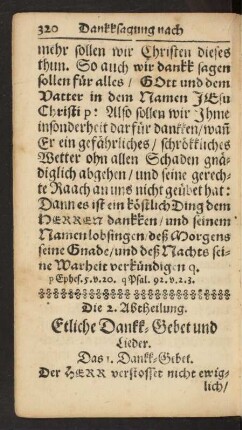 320 Dankksagung nach
mehr sollen wir Christen dieses
thun. So auch wir dankk sagen
sollen für alles / GOtt und dem
Vatter in dem Namen JEsu
Christi p: Also sollen wir Ihme
insonderheit darfür dankken / wañ
Er ein gefährliches / schrökkliches
Wetter ohn allen Schaden gnä-
diglich abgehen / und seine gerech-
te Raach an uns nicht geübet hat:
Dann es ist ein köstlich Ding dem
HERREN dankken / und seinem
Namen lobsingen / deß Morgens
seine Gnade / und deß Nachts sei-
ne Warheit verkündigen q.
p Ephes. 5. v. 20. q Psal. 92. v. 2. 3.
Die 2. Abtheilung.
Etliche Dankk-Gebet und
Lieder.
Das 1. Dankk-Gebet.
Der HERR verstosset nicht ewig-
lich /